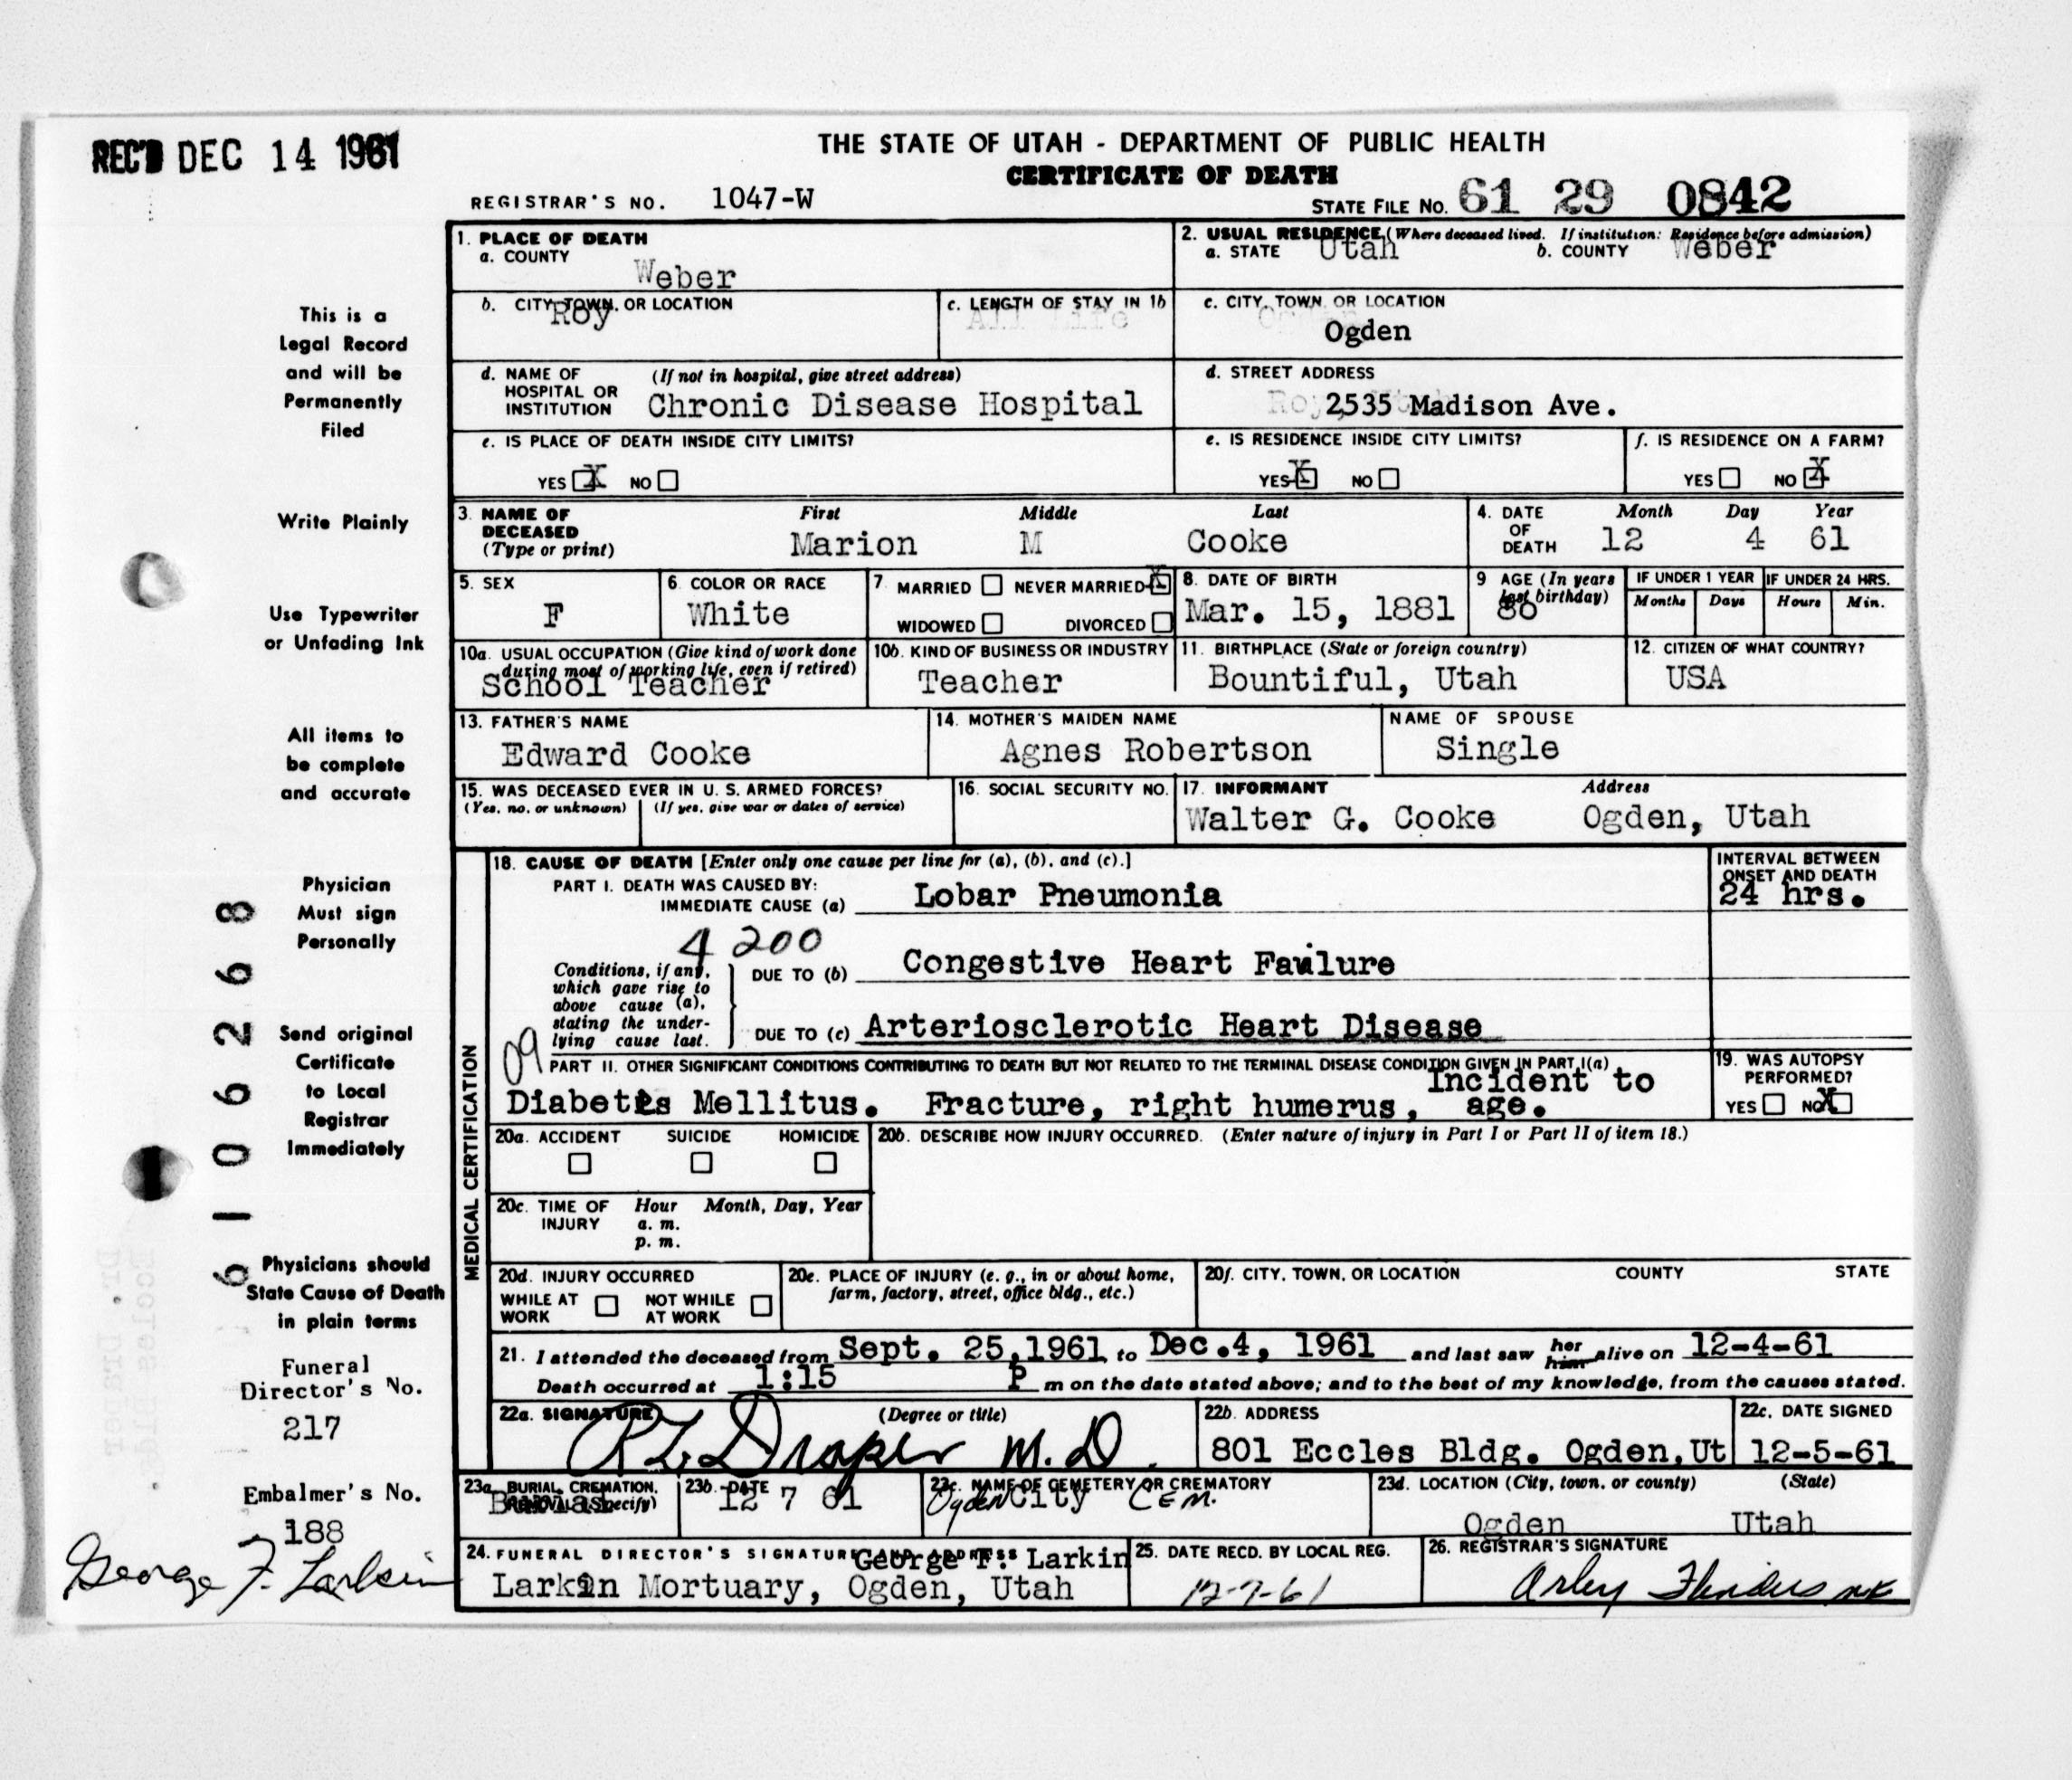 REC'D DEC 14 1961
THE STATE OF UTAH - DEPARTMENT OF PUBLIC HEALTH
CERTIFICATE OF DEATH
REGISTRAR'S NO. 1047-W
STATE FILE NO. 61 29 0842
1. PLACE OF DEATH
a. COUNTY
Weber
2. USUAL RESIDENCE (Where deceased lived. If institution: Residence before admission)
a. STATE Utah b. COUNTY Weber
b. CITY, TOWN, OR LOCATION
Roy
c. LENGTH OF STAY IN 1b
All Life
c. CITY, TOWN OR LOCATION
Ogden
d. NAME OF HOSPITAL OR INSTITUTION (If not in hospital, give street address)
Chronic Disease Hospital
d. STREET ADDRESS
2535 Madison Ave.
e. IS PLACE OF DEATH INSIDE CITY LIMITS?
YES X NO
e. IS RESIDENCE INSIDE CITY LIMITS?
YES X NO
f. IS RESIDENCE ON A FARM?
YES NO X
3. NAME OF DECEASED (Type or print)
First Middle Last
Marion M Cooke
4. DATE OF DEATH
Month Day Year
12 4 61
5. SEX
F
6. COLOR OR RACE
White
7. MARRIED NEVER MARRIED X
WIDOWED DIVORCED
8. DATE OF BIRTH
Mar. 15, 1881
9 AGE (In years last birthday)
80
IF UNDER 1 YEAR
Months Days
IF UNDER 24 HRS.
Hours Min.
10a. USUAL OCCUPATION (Give kind of work done during most of working life, even if retired)
School Teacher
10b. KIND OF BUSINESS OR INDUSTRY
Teacher
11. BIRTHPLACE (State or foreign country)
Bountiful, Utah
12. CITIZEN OF WHAT COUNTRY?
USA
13. FATHER'S NAME
Edward Cooke
14. MOTHER'S MAIDEN NAME
Agnes Robertson
NAME OF SPOUSE
Single
15. WAS DECEASED EVER IN U. S. ARMED FORCES?
(Yes, no, or unknown) (If yes, give war or dates of service)
16. SOCIAL SECURITY NO.
17. INFORMANT Address
Walter G. Cooke Ogden, Utah
MEDICAL CERTIFICATION
18. CAUSE OF DEATH [Enter only one cause per line for (a), (b), and (c).]
PART I. DEATH WAS CAUSED BY:
IMMEDIATE CAUSE (a) Lobar Pneumonia
INTERVAL BETWEEN ONSET AND DEATH
24 hrs.
4 200
Conditions, if any, which gave rise to above cause (a), stating the underlying cause last.
DUE TO (b) Congestive Heart Failure
DUE TO (c) Arteriosclerotic Heart Disease
09
PART II. OTHER SIGNIFICANT CONDITIONS CONTRIBUTING TO DEATH BUT NOT RELATED TO THE TERMINAL DISEASE CONDITION GIVEN IN PART I(a)
Diabetes Mellitus. Fracture, right humerus, Incident to age.
19. WAS AUTOPSY PERFORMED?
YES NO X
20a. ACCIDENT SUICIDE HOMICIDE
20b. DESCRIBE HOW INJURY OCCURRED. (Enter nature of injury in Part I or Part II of item 18.)
20c. TIME OF INJURY Hour Month, Day, Year
a. m.
p. m.
20d. INJURY OCCURRED
WHILE AT WORK NOT WHILE AT WORK
20e. PLACE OF INJURY (e. g., in or about home, farm, factory, street, office bldg., etc.)
20f. CITY, TOWN, OR LOCATION COUNTY STATE
21. I attended the deceased from Sept. 25, 1961 to Dec.4, 1961 and last saw her him alive on 12-4-61
Death occurred at 1:15 P m on the date stated above; and to the best of my knowledge, from the causes stated.
22a. SIGNATURE (Degree or title)
Draper M.D.
22b. ADDRESS
801 Eccles Bldg. Ogden, Ut
22c. DATE SIGNED
12-5-61
23a. BURIAL, CREMATION, REMOVAL (Specify)
Burial
23b. DATE
12 7 61
23c. NAME OF CEMETERY OR CREMATORY
Ogden City Cem.
23d. LOCATION (City, town, or county) (State)
Ogden Utah
24. FUNERAL DIRECTOR'S SIGNATURE AND ADDRESS George F. Larkin
Larkin Mortuary, Ogden, Utah
25. DATE RECD. BY LOCAL REG.
12-7-61
26. REGISTRAR'S SIGNATURE
This is a
Legal Record
and will be
Permanently
Filed
Write Plainly
Use Typewriter
or Unfading Ink
All items to
be complete
and accurate
Physician
Must sign
Personally
Send original
Certificate
to Local
Registrar
Immediately
Physicians should
State Cause of Death
in plain terms
6 1 0 6 2 6 8
Funeral
Director's No.
217
Embalmer's No.
188
George F. Larkin